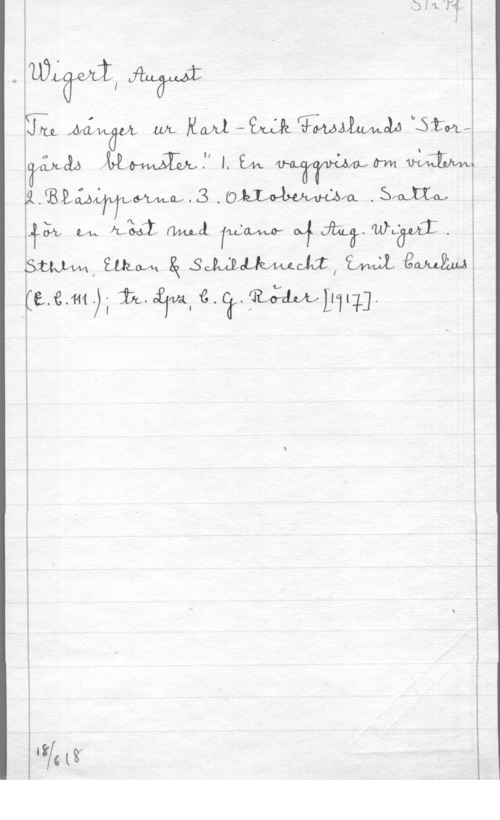 Wigert, August
Tre sånger ur Karl-Erik Forsslunds "Stor-
gårds blomster." 1. En vaggvisa om vintern.
2. Blåsipporna. 3. Oktobervisa. Satta
för en röst med piano af Aug. Wigert.
Sthlm, Elkan & Schildknecht, Emil Carelius
(E.C.M.); tr. Lpz, C. G. Röder [1917].
18/618